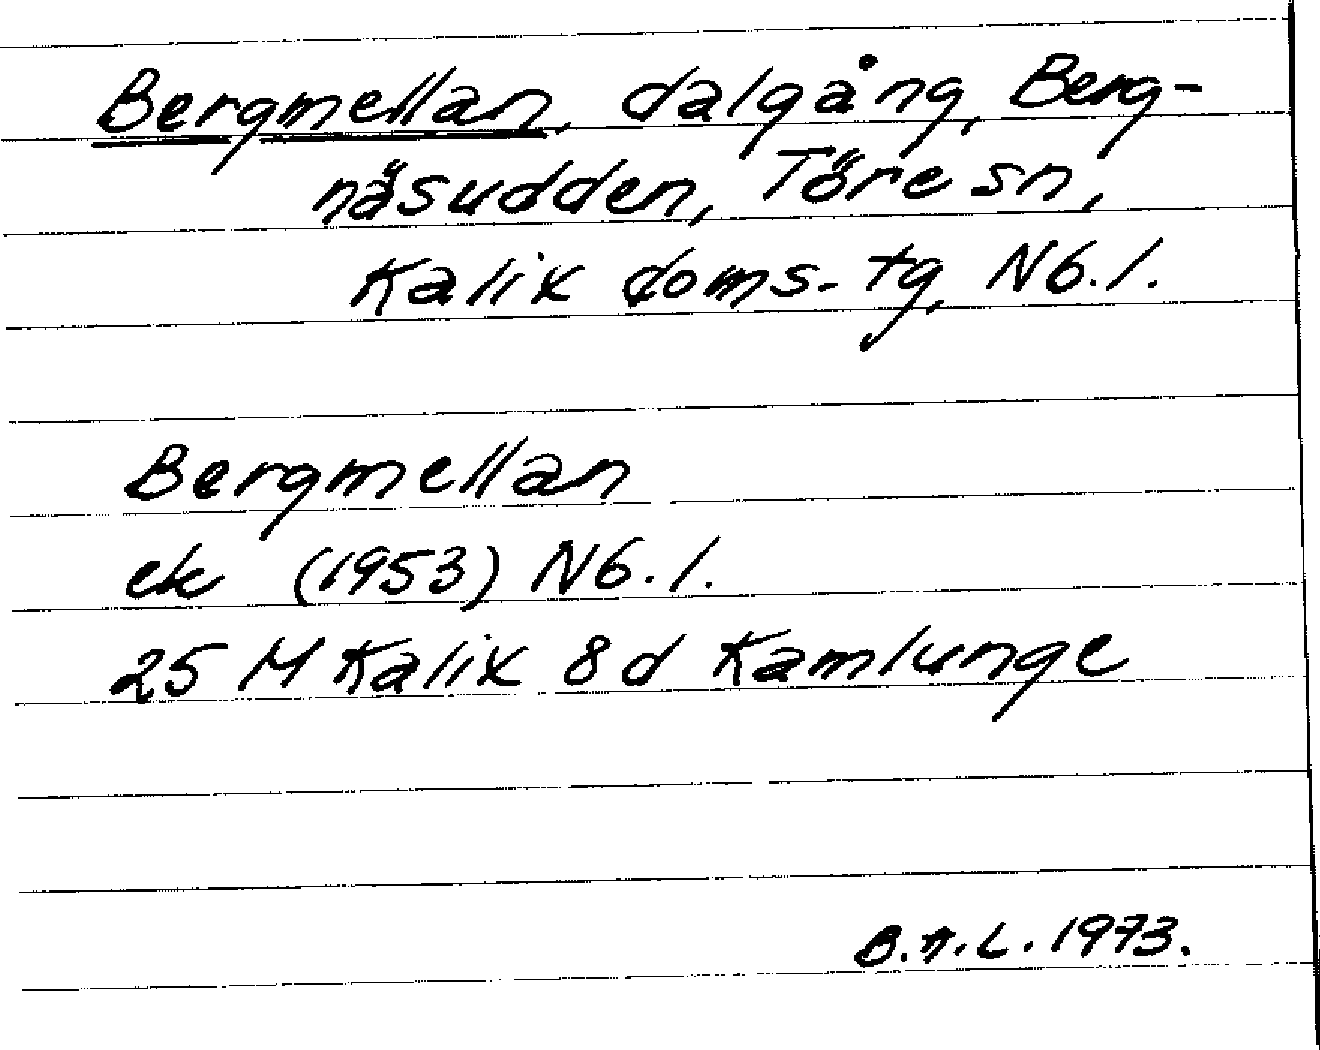 Bergmellan, dalgång, Berg-
näsudden, Töre sn,
Kalix doms. tg, Nb. l.
Bergmellan
ek (1953) Nb. l.
25 M Kalix 8d Kamlunge
B.A.L. 1973.